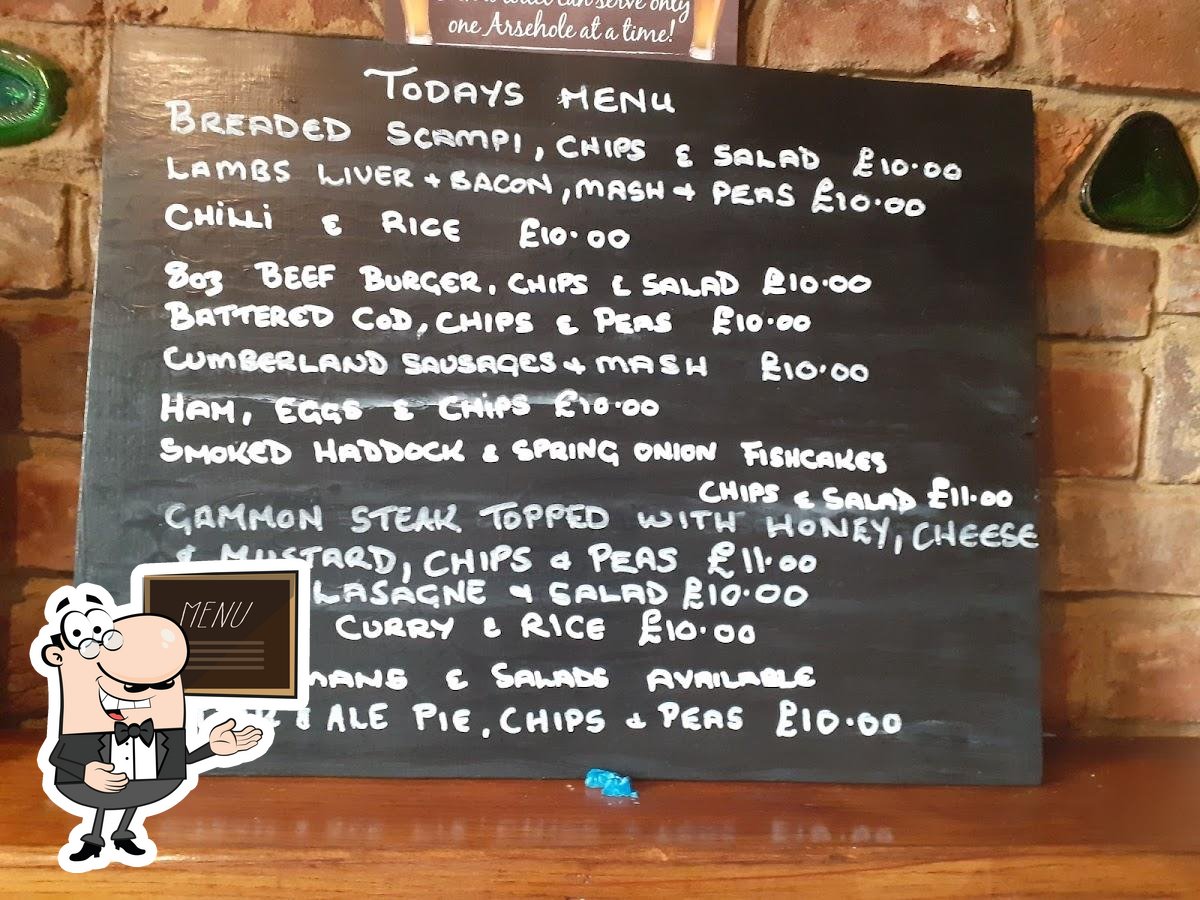 can serve only
one Arsehole at a time!
TODAYS MENU
BREADED SCAMPI, CHIPS & SALAD £10.00
LAMBS LIVER + BACON, MASH + PEAS £10.00
CHILLI & RICE £10.00
8oz BEEF BURGER, CHIPS & SALAD £10.00
BATTERED COD, CHIPS & PEAS £10.00
CUMBERLAND SAUSAGES & MASH £10.00
HAM, EGGS & CHIPS £10.00
SMOKED HADDOCK & SPRING ONION FISHCAKES
CHIPS & SALAD £11.00
GAMMON STEAK TOPPED WITH HONEY, CHEESE
& MUSTARD, CHIPS & PEAS £11.00
LASAGNE & SALAD £10.00
CURRY & RICE £10.00
MANS & SALADS AVAILABLE
& ALE PIE, CHIPS & PEAS £10.00
MENU